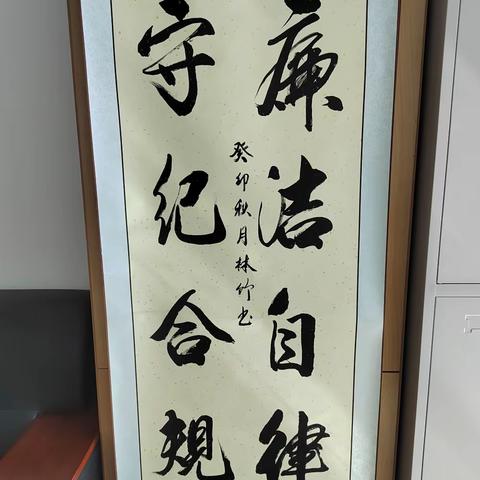 廉洁自律
守纪合规
癸卯秋月林竹书